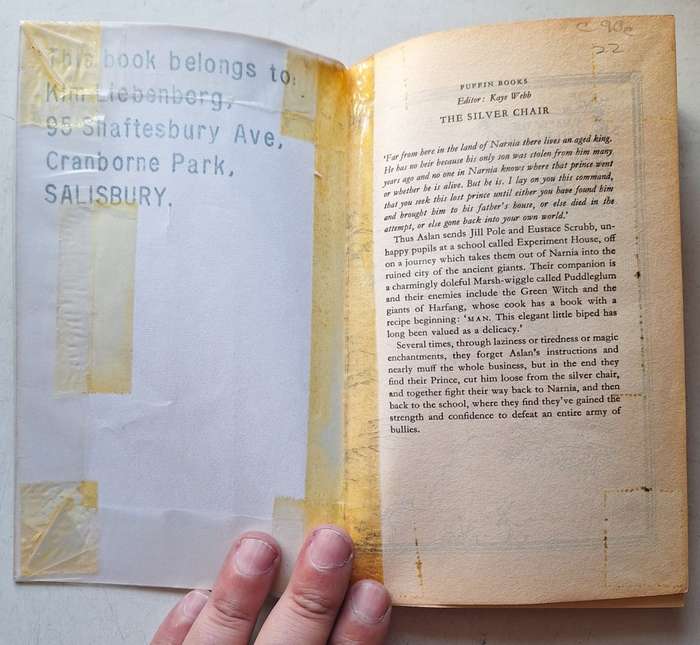 This book belongs to:
Kim Liebenberg,
95 Shaftesbury Ave,
Cranborne Park,
SALISBURY.
22
PUFFIN BOOKS
Editor: Kaye Webb
THE SILVER CHAIR
'Far from here in the land of Narnia there lives an aged king.
He has no heir because his only son was stolen from him many
years ago and no one in Narnia knows where that prince went
or whether he is alive. But he is. I lay on you this command,
that you seek this lost prince until either you have found him
and brought him to his father's house, or else died in the
attempt, or else gone back into your own world.'
Thus Aslan sends Jill Pole and Eustace Scrubb, un-
happy pupils at a school called Experiment House, off
on a journey which takes them out of Narnia into the
ruined city of the ancient giants. Their companion is
a charmingly doleful Marsh-wiggle called Puddleglum
and their enemies include the Green Witch and the
giants of Harfang, whose cook has a book with a
recipe beginning: 'MAN. This elegant little biped has
long been valued as a delicacy.'
Several times, through laziness or tiredness or magic
enchantments, they forget Aslan's instructions and
nearly muff the whole business, but in the end they
find their Prince, cut him loose from the silver chair,
and together fight their way back to Narnia, and then
back to the school, where they find they've gained the
strength and confidence to defeat an entire army of
bullies.